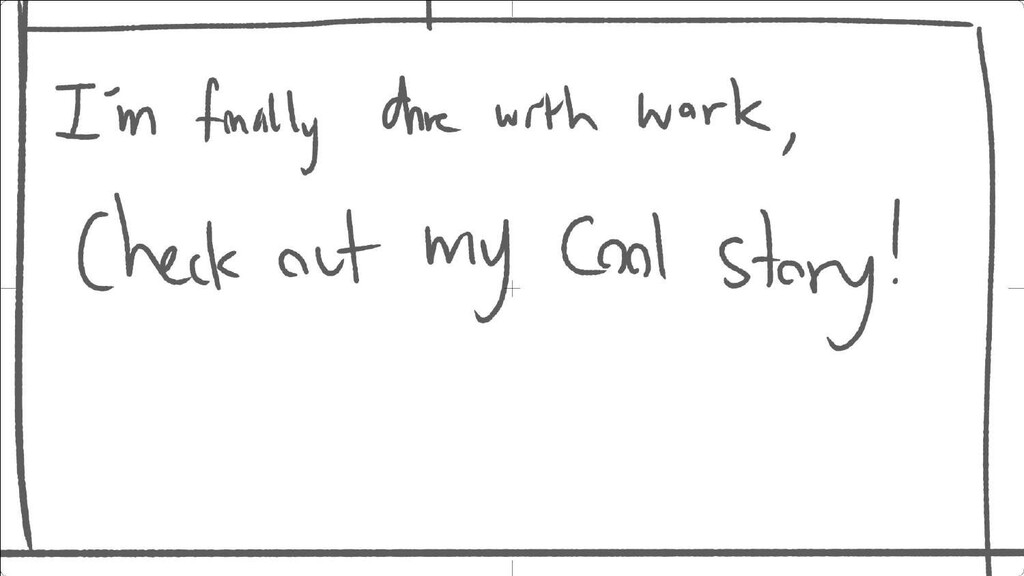 I'm finally done with work,
Check out my cool story!